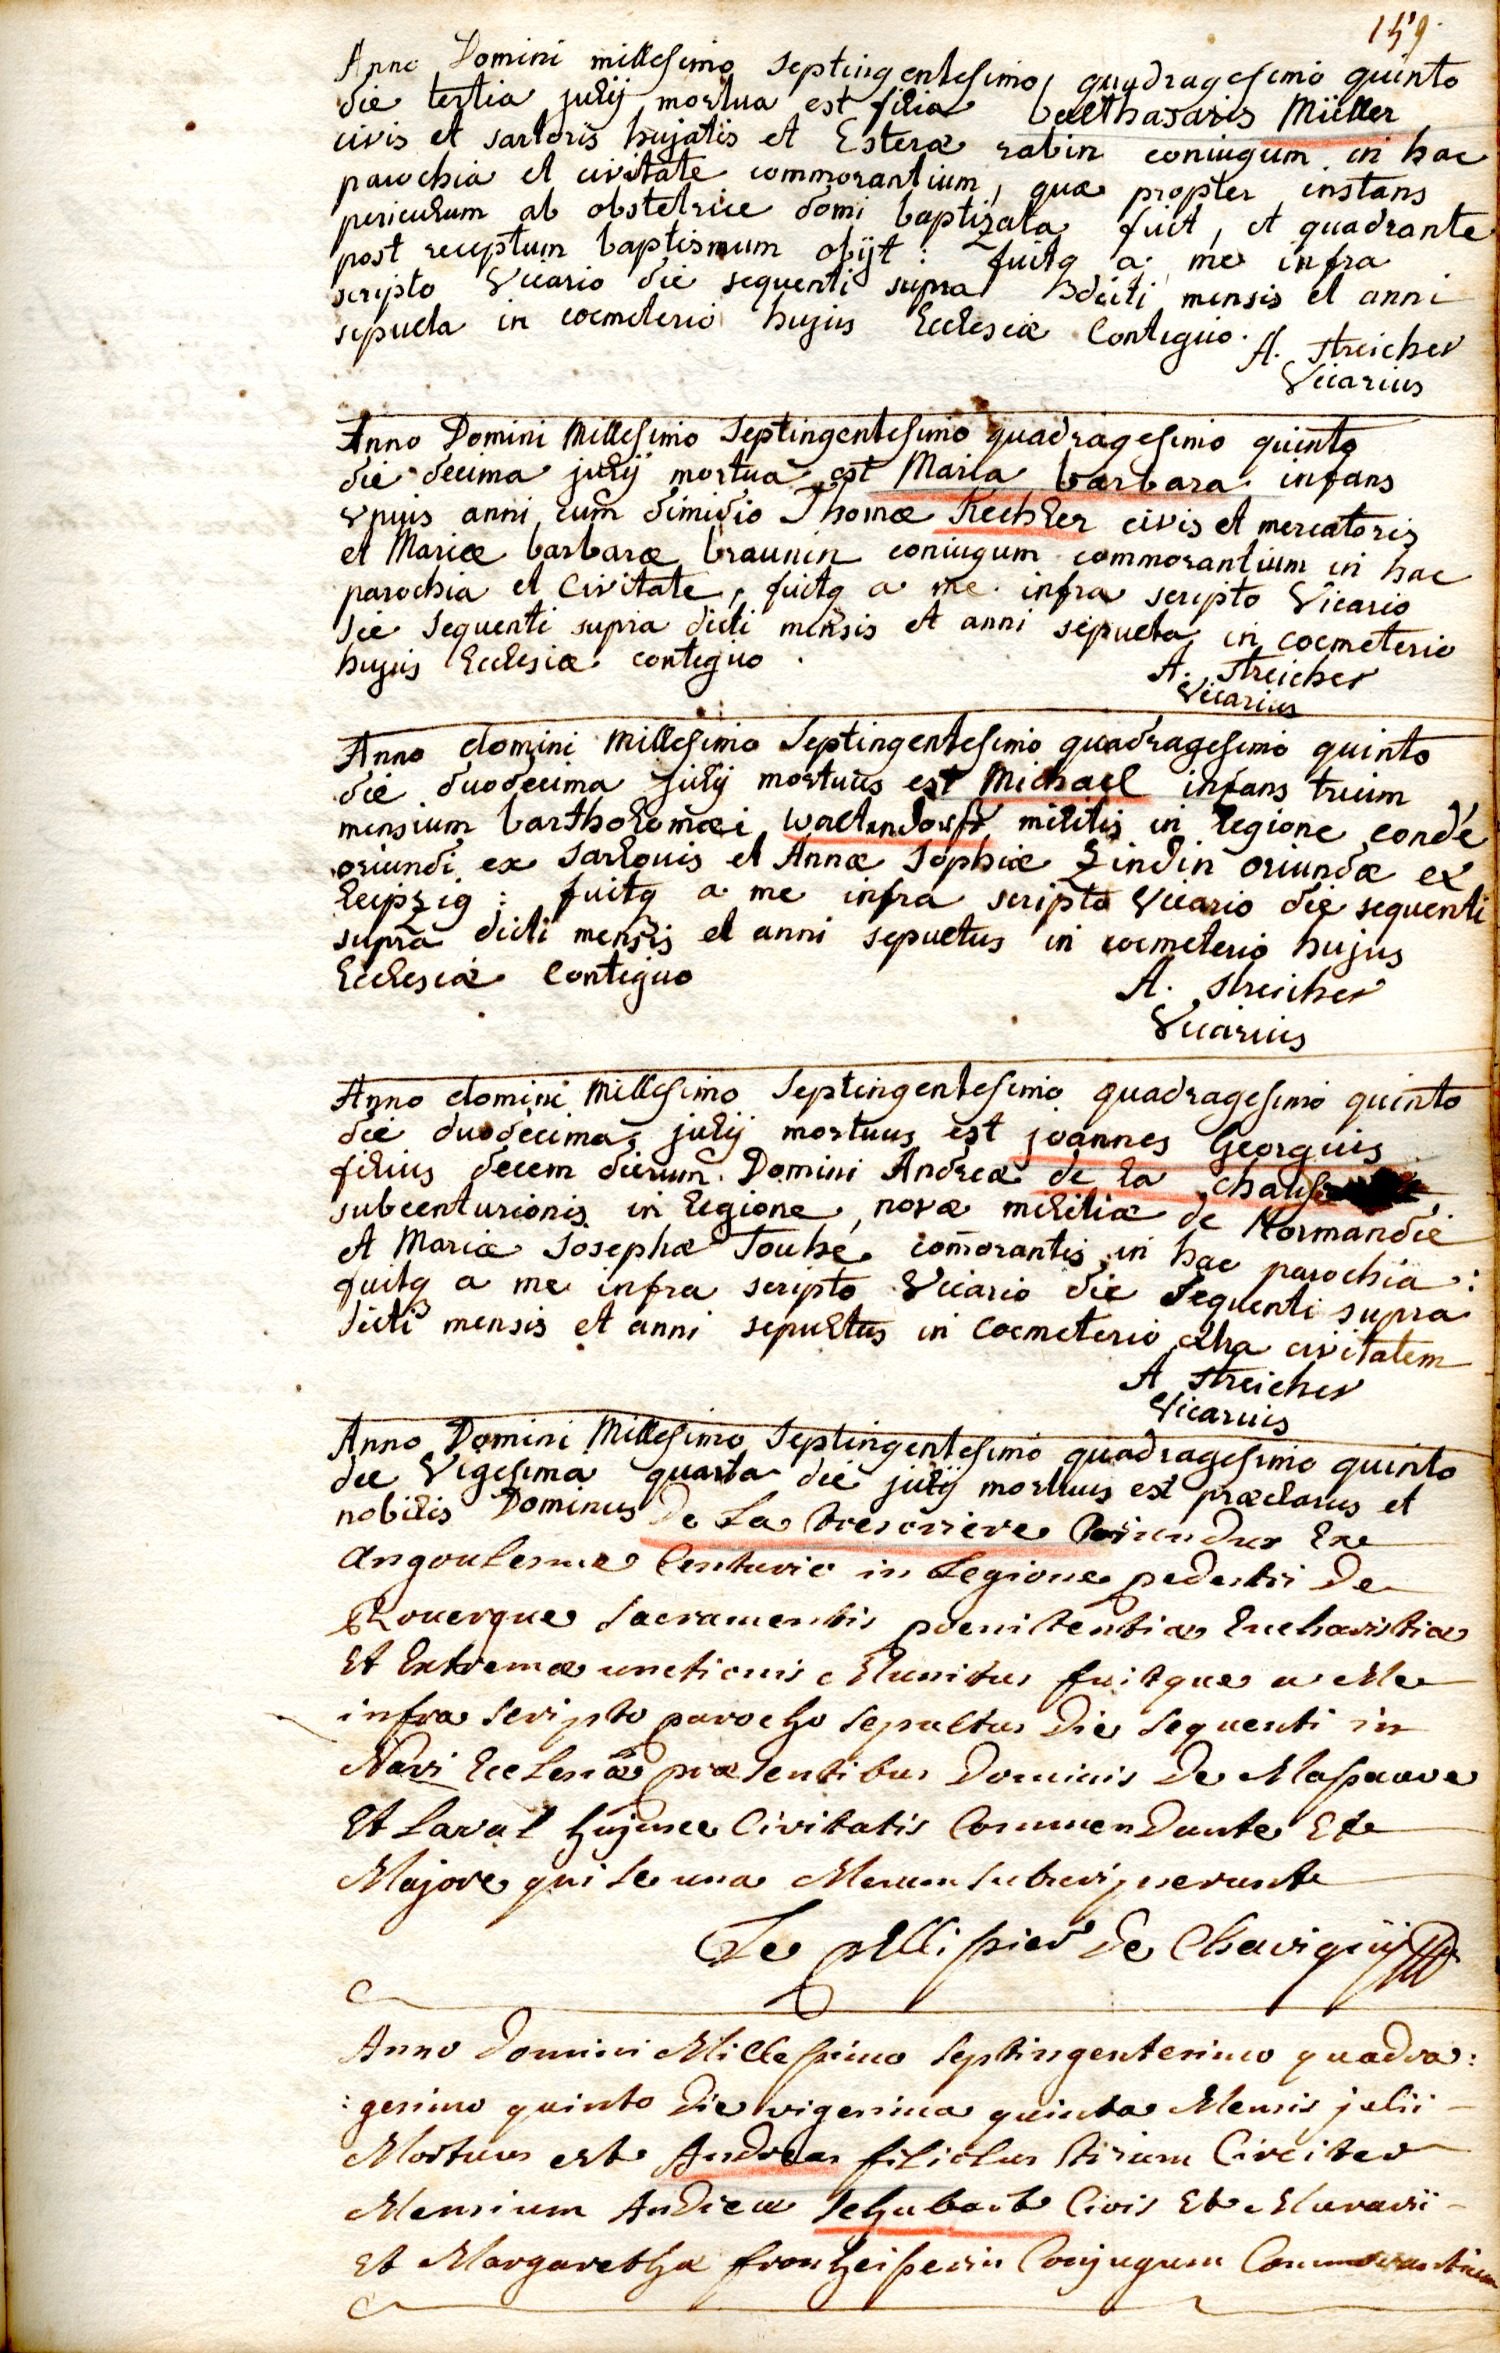 159.
Anno Domini millesimo septingentesimo quadragesimo quinto
die tertia julij mortua est filia balthasaris Müller
civis et sartoris hujatis et Esteræ rabin coniugum in hac
parochia et civitate commorantium, quæ propter instans
periculum ab obstetrice domi baptizata fuit, et quadrante
post receptum baptismum obijt: fuitq a me infra
scripto Vicario die sequenti supra dicti mensis et anni
sepulta in coemeterio hujus Ecclesiæ Contiguo.
A. Streicher
Vicarius
Anno Domini Millesimo Septingentesimo quadragesimo quinto
die decima julij mortua est Maria barbara infans
unius anni cum dimidio Thomæ Kechler civis et mercatoris
et Mariæ barbaræ braunin coniugum commorantium in hac
parochia et Civitate, fuitq a me infra scripto Vicario
die sequenti supra dicti mensis et anni sepulta in coemeterio
hujus Ecclesiæ contiguo.
A. Streicher
Vicarius
Anno domini Millesimo Septingentesimo quadragesimo quinto
die duodecima julij mortuus est Michael infans trium
mensium bartholomæi waltendorff militis in legione condé
oriundi ex Sarlouis et Annæ Sophiæ Zindin oriundæ ex
Leipzig: fuitq a me infra scripto Vicario die sequenti
supra dicti mensis et anni sepultus in coemeterio hujus
Ecclesiæ Contiguo
A. Streicher
Vicarius
Anno domini Millesimo Septingentesimo quadragesimo quinto
die duodecima julij mortuus est joannes Georgius
filius decem dierum Domini Andreæ de la
subcenturionis in legione novæ militiæ de Normandie
et Mariæ Josephæ Touhe com̄orantis in hac parochia:
fuitq a me infra scripto Vicario die sequenti supra
dicti mensis et anni sepultus in Coemeterio extra civitatem
A Streicher
Vicarius
Anno Domini Millesimo Septingentesimo quadragesimo quinto
die Vigesima quarta die julij mortuus est præclarus et
nobilis Dominus De La oriundus Ex
Angoulesme Centurio in Legione pedestri De
Rouergue Sacramentis poenitentiæ Eucharistiæ
Et Extremæ unctionis Munitus fuitque a Me
infra scripto parocho sepultus Die sequenti in
Navi Ecclesiæ præsentibus Dominis De
Et Laval hujusce Civitatis Commendante Et
Majore qui se una Mecum subscripserunt
Le pellissier de Chavigny
Anno Domini Millessimo Septingentesimo quadra:
:gesimo quinto Die vigesima quinta Mensis julii
Mortuus est Andreas filiolus trium Circiter
Mensium Andreæ Schubart Civis Et Murarii
et Margarethæ fronheiserin Conjugum Commorantium